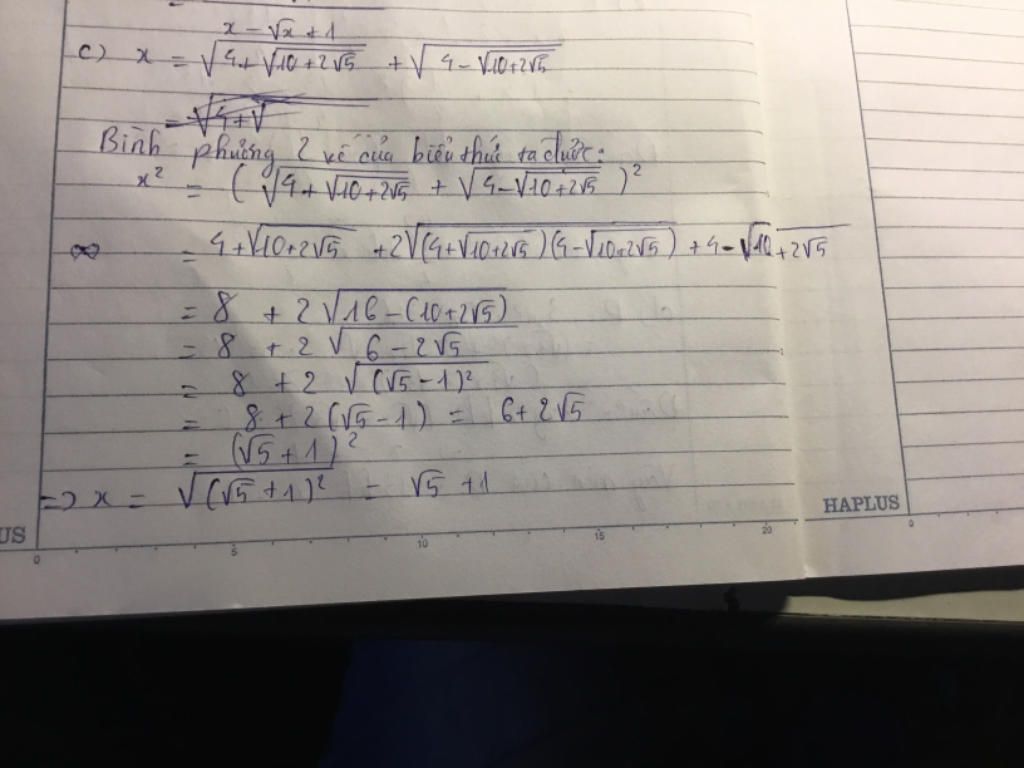 x - √x + 1
c) x = √(4+√(10+2√5)) + √(4-√(10+2√5))
= √4+√
Bình phương 2 vế của biểu thức ta được:
x² = (√(4+√(10+2√5)) + √(4-√(10+2√5)))²
= 4+√(10+2√5) + 2√((4+√(10+2√5))(4-√(10+2√5))) + 4-√(10+2√5)
= 8 + 2√(16-(10+2√5))
= 8 + 2√(6-2√5)
= 8 + 2√((√5-1)²)
= 8 + 2(√5-1) = 6+2√5
= (√5+1)²
=> x = √((√5+1)²) = √5+1
HAPLUS
US
0 5 10 15 20 0